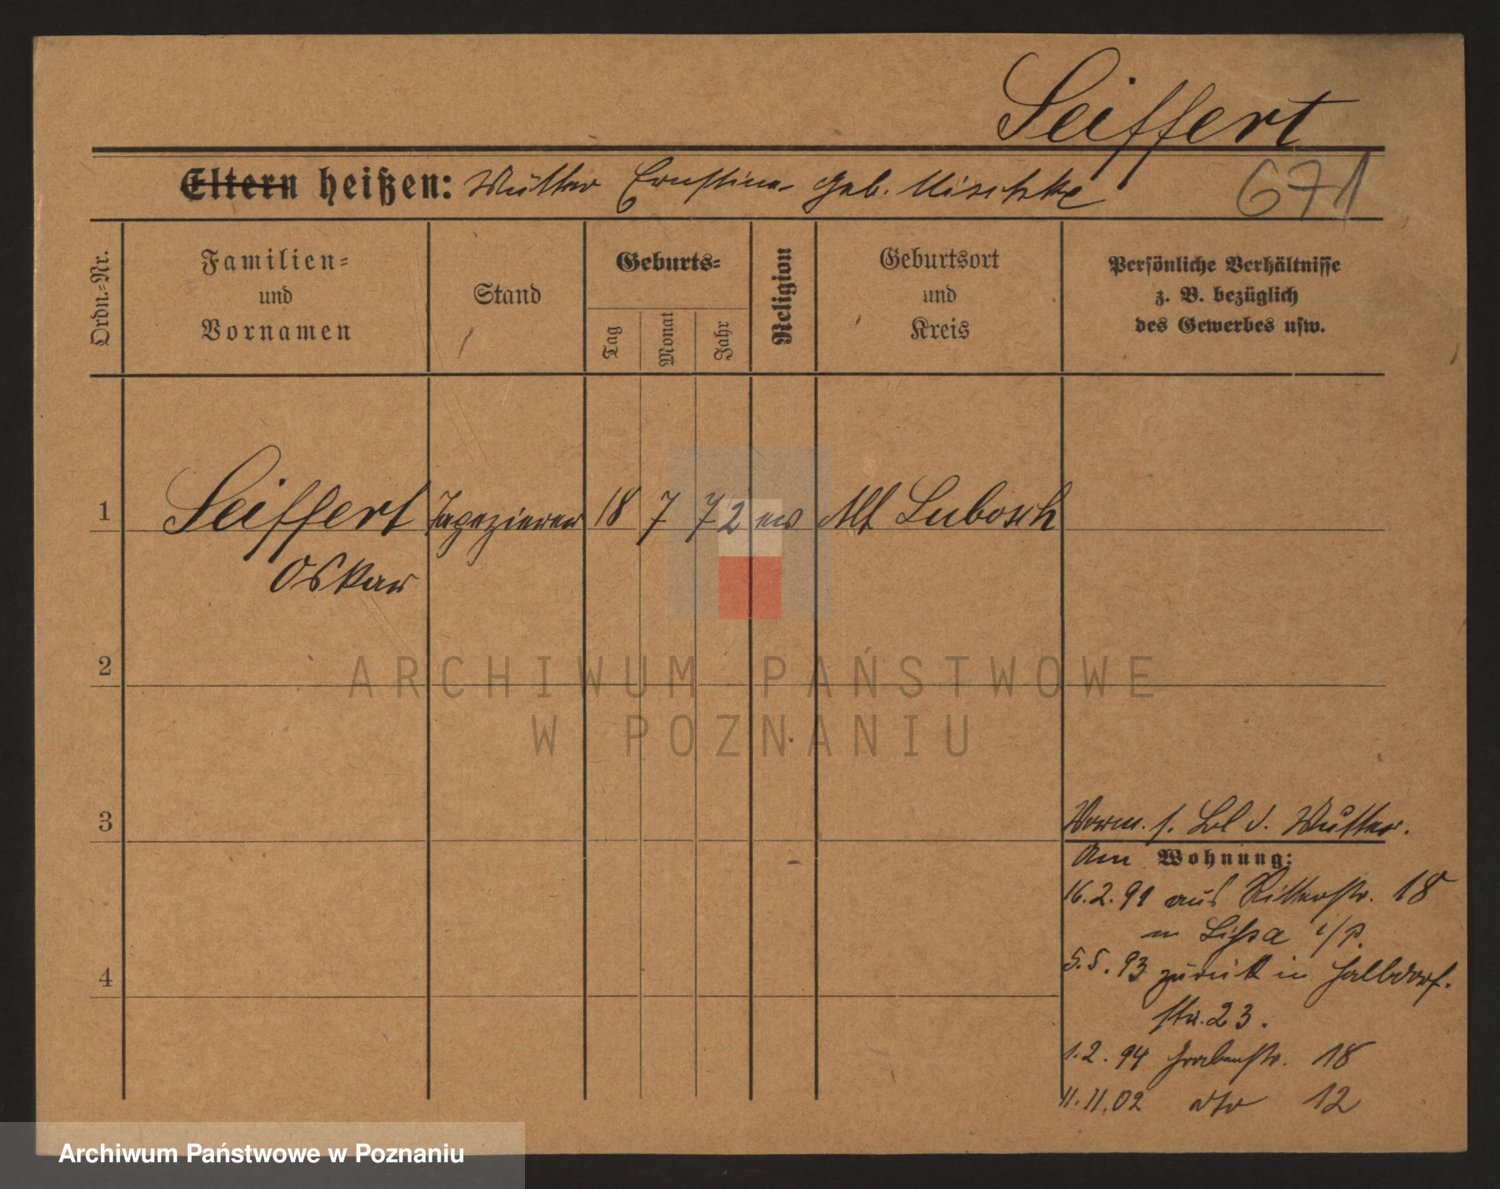 Seiffert
Eltern heißen: Mutter Ernstine geb. Nischke
671
Ordn.-Nr.
Familien-
und
Vornamen
Stand
Geburts-
Tag
Monat
Jahr
Religion
Geburtsort
und
Kreis
Persönliche Verhältnisse
z. B. bezüglich
des Gewerbes usw.
1 Seiffert Tapezierer 18 7 72 ev Alt Lubosch
Oskar
2
3
4
Vorm. s. Bl d. Mutter.
Am Wohnung:
16.2.91 aus Ritterstr. 18
n Lissa i/P.
5.5.93 zurück in Halbdorf-
str. 23.
1.2.94 Grabenstr. 18
11.11.02 dto 12
ARCHIWUM PAŃSTWOWE
W POZNANIU
Archiwum Państwowe w Poznaniu